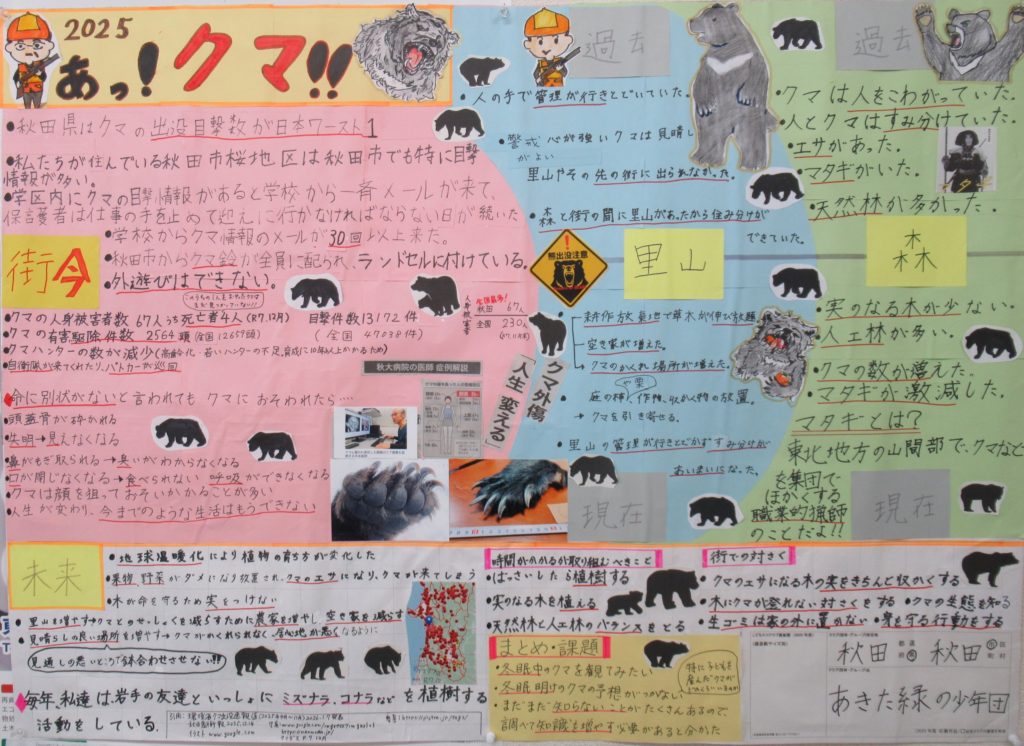 2025
あっ!クマ!!
●秋田県はクマの出没目撃数が日本ワースト1
●私たちが住んでいる秋田市桜地区は秋田市でも特に目撃
情報が多い。
●学区内にクマの目撃情報があると学校から一斉メールが来て、
保護者は仕事の手を止めて迎えに行かなければならない日が続いた
●学校からクマ情報のメールが30回以上来た。
●秋田市からクマ鈴が全員に配られ、ランドセルに付けている。
●外遊びはできない。
街今
●クマの人身被害者数 67人うち死亡者4人(R7.12月) 目撃件数13172件
●クマの有害駆除件数 2564頭(全国12659頭) (全国 47038件)
●クマハンターの数が減少(高齢化・若いハンターの不足,育成に10年以上かかるため)
●自衛隊が来てくれたり、パトカーが巡回
人身被害者
秋田 67人
全国 230人
命に別状がないと言われても クマにおそわれたら…
●頭蓋骨が砕かれる
●失明→見えなくなる
●鼻がもぎ取られる→臭いがわからなくなる
●口が閉じなくなる→食べられない 呼吸ができなくなる
●クマは顔を狙っておそいかかることが多い
●人生が変わり、今までのような生活はもうできない
秋大病院の医師 症例解説
クマ外傷
「人生 変える」
過去
●人の手で管理が行きとどいていた。
●警戒心が強いクマは見晴し
がよい
里山やその先の街に出られなかった。
●森と街の間に里山があったから住み分けが
できていた。
熊出没注意
里山
●耕作放棄地で草木が伸び放題
●空き家が増えた。
●クマのかくれ場所が増えた。
●庭の柿や栗、作物、収かく物の放置。
→クマを引き寄せる。
●里山の管理が行きとどかずすみ分けが
あいまいになった。
現在
過去
●クマは人をこわがっていた。
●人とクマはすみ分けていた。
●エサがあった。
●マタギがいた。
●天然林が多かった。
森
●実のなる木が少ない
●人工林が多い。
●クマの数が増えた。
●マタギが激減した。
マタギとは?
東北地方の山間部で、クマなど
を集団で
ほかくする
職業的猟師
のことだよ!!
現在
未来
●地球温暖化により植物の育ち方が変化した
●果物、野菜がダメになり放置され、クマのエサになり、クマが来てしまう
●木が命を守るため実をつけない
●里山を増やす→クマとのせっしょくを減らすために農家を増やし 空き家を減らす
●見晴らしの良い場所を増やす→クマがかくれられなく、居心地が悪くなるように
見通しの悪いところで鉢合わせさせない!!
毎年、私達は岩手の友達といっしょに ミズナラ、コナラなどを植樹する
活動をしている。
時間がかかるが取り組むべきこと
●ばっさいしたら植樹する
●実のなる木を植える
●天然林と人工林のバランスをとる
街での対さく
●クマのエサになる木の実をきちんと収かくする
●木にクマが登れない対さくをする ●クマの生態を知る
●生ゴミは家の外に置かない ●身を守る行動をする
まとめ・課題
●冬眠中のクマを観てみたい
●冬眠明けのクマの予想がつかない
●まだまだ知らないことがたくさんあるので、
調べて知識を増やす必要があると分かった
秋田 都道府県 秋田 市区町村
あきた緑の少年団